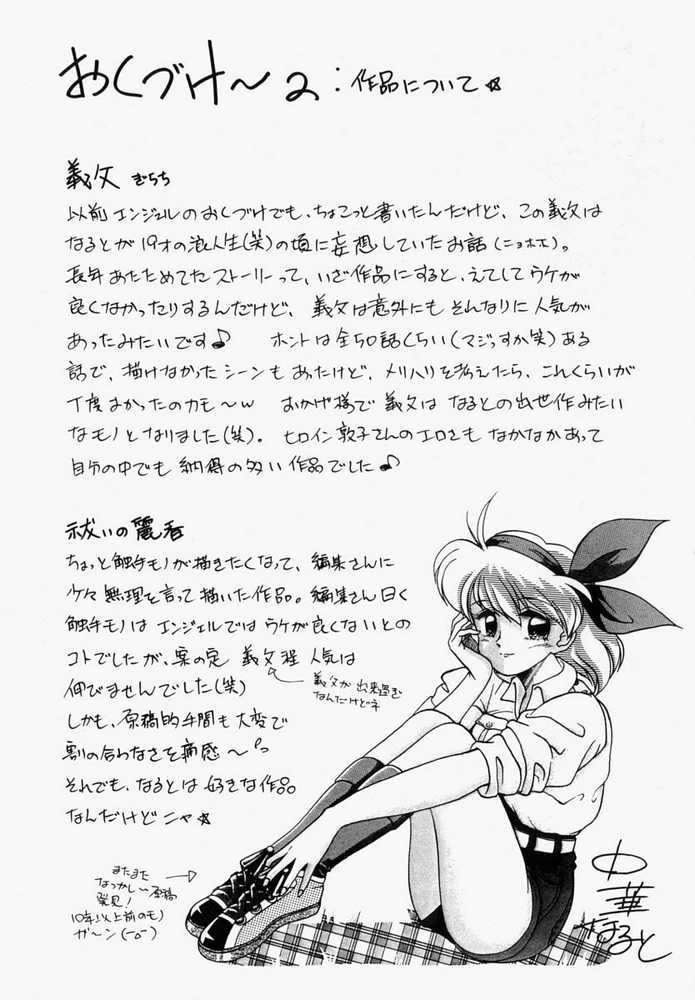 おくづけ〜2：作品について☆
義父 ぎちち
以前エンジェルのおくづけでも、ちょこっと書いたんだけど、この義父は
なるとが19才の浪人生(笑)の頃に妄想していたお話(ニョホホエ)。
長年あたためてたストーリーって、いざ作品にすると、えてしてウケが
良くなかったりするんだけど、義父は意外にもそれなりに人気が
あったみたいです♪ ホントは全50話くらい(マジっすか笑)ある
話で、描けなかったシーンもあったけど、メリハリを考えたら、これくらいが
丁度よかったのカモ〜w おかげ様で義父はなるとの出世作みたい
なモノとなりました(笑)。ヒロイン敦子さんのエロさもなかなかあって
自分の中でも納得の多い作品でした♪
祓いの麗香
ちょっと触手モノが描きたくなって、編集さんに
少々無理を言って描いた作品。編集さん曰く
触手モノはエンジェルではウケが良くないとの
コトでしたが、案の定 義父程人気は
伸びませんでした(笑)
義父が出来過ぎ
なんだけどネ
しかも、原稿的手間も大変で
割の合わなさを痛感〜
それでも、なるとは好きな作品
なんだけどニャ☆
またまた
なつかし〜原稿
発見！
10年以上前のモノ
ガ〜ン
中華
なると